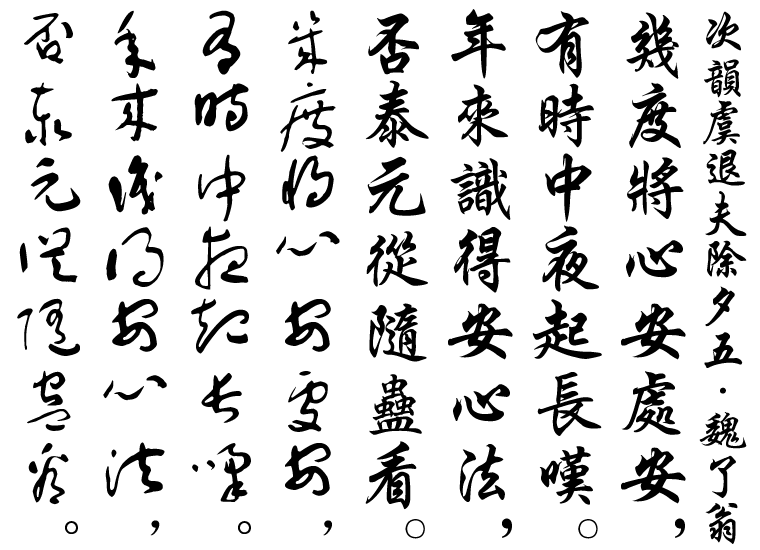 次韻虞退夫除夕五．魏了翁
幾度將心安處安，
有時中夜起長嘆。
年來識得安心法，
否泰元從隨蠱看。
幾度將心安處安，
有時中夜起長嘆。
年來識得安心法，
否泰元從隨蠱看。